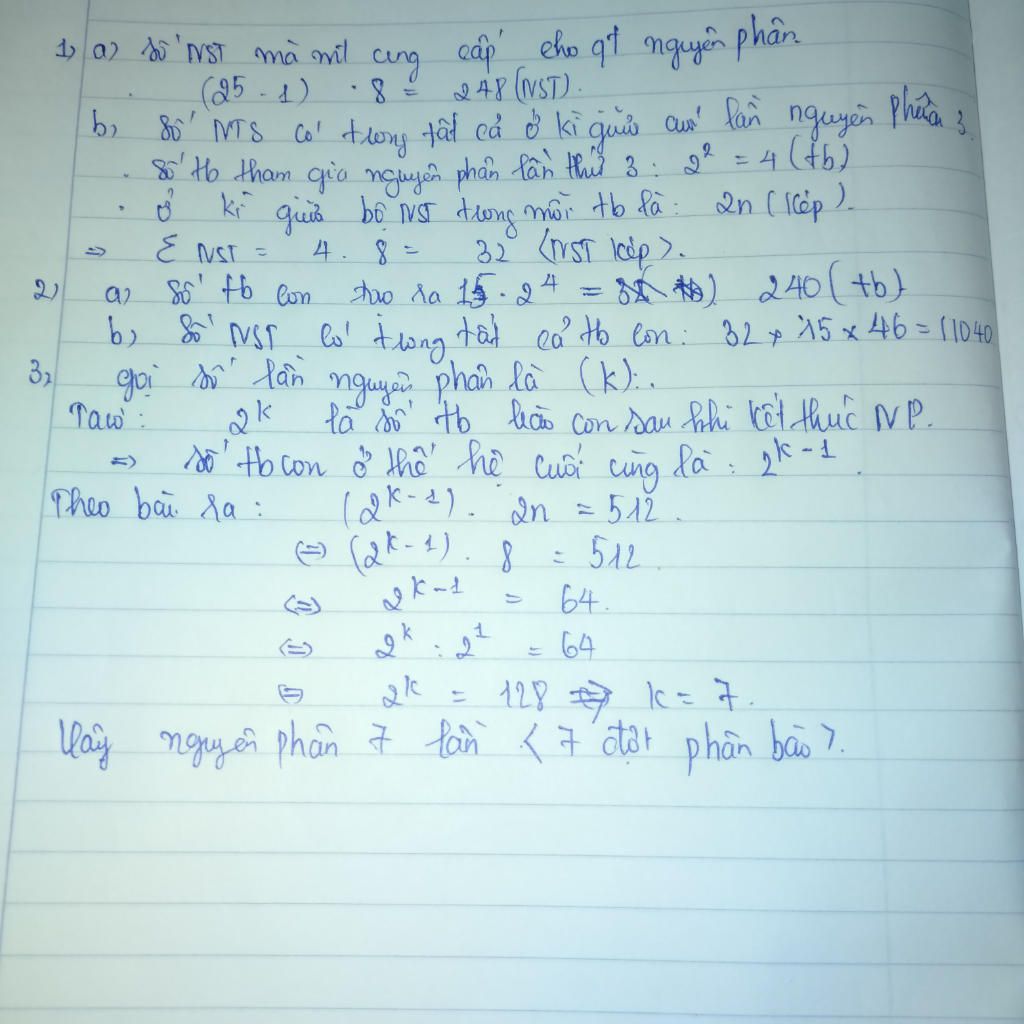 1) a) Số NST mà mtl cung cấp cho qt nguyên phân.
(25 - 1) . 8 = 248 (NST).
b) Số NTS có trong tất cả ở kì giữa của lần nguyên phân 3.
. Số tb tham gia nguyên phân lần thứ 3 : 2² = 4 (tb)
. Ở kì giữa bộ NST trong mỗi tb là : 2n (kép).
=> Σ NST = 4 . 8 = 32 <NST kép>.
2) a) Số tb con tạo ra 15 . 2⁴ = 240 (tb)
b) Số NST có trong tất cả tb con : 32 × 15 × 46 = 11040
3) gọi số lần nguyên phân là (k) :.
Ta có : 2^k là số tb bào con sau khi kết thúc NP.
=> số tb con ở thế hệ cuối cùng là : 2^(k-1).
Theo bài ra : (2^(k-1)) . 2n = 512.
<=> (2^(k-1)) . 8 = 512.
<=> 2^(k-1) = 64.
<=> 2^k : 2¹ = 64
<=> 2^k = 128 => k = 7.
Vậy nguyên phân 7 lần < 7 đợt phân bào >.